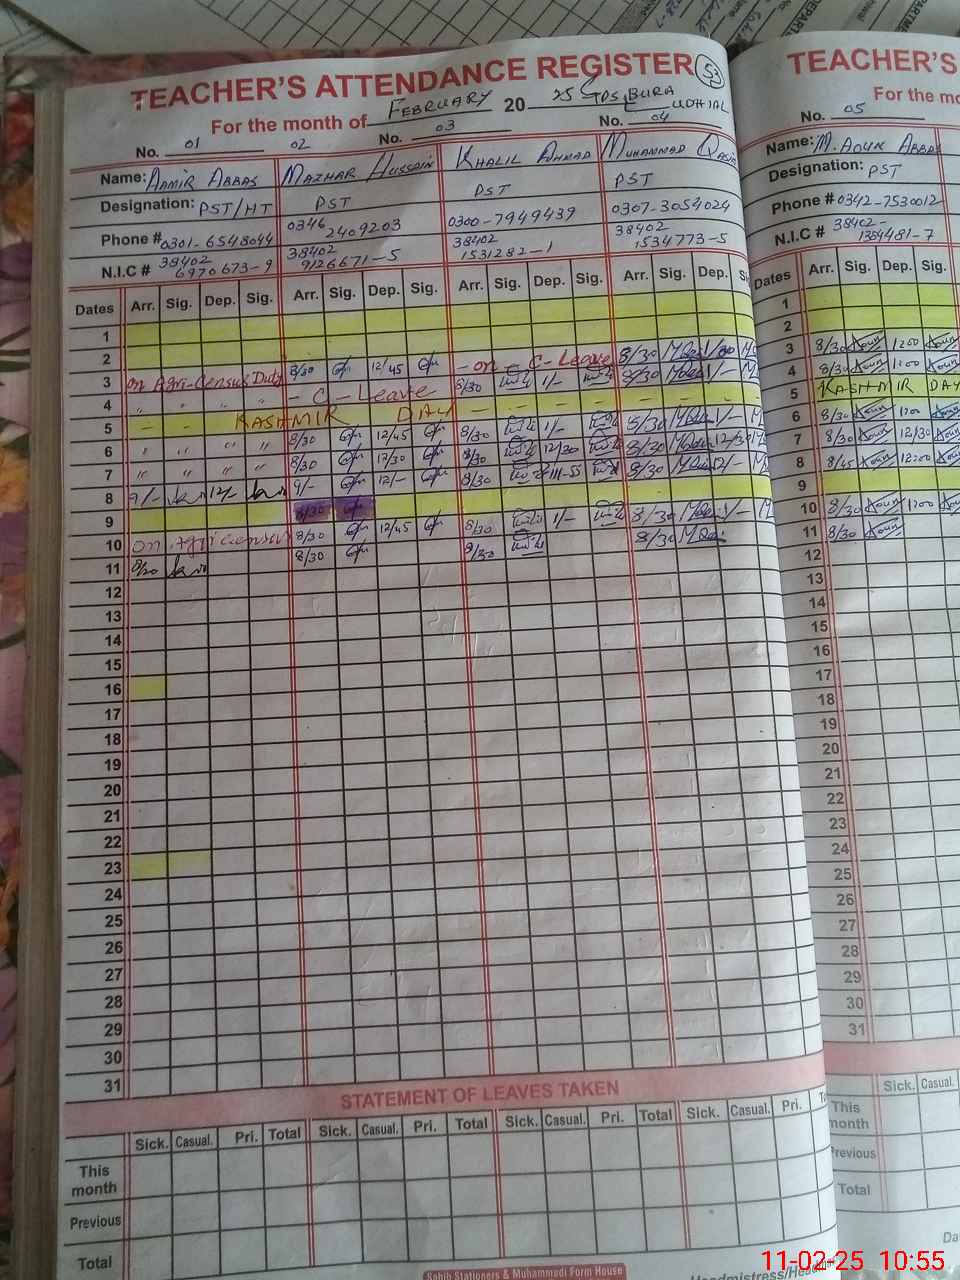 TEACHER'S ATTENDANCE REGISTER 53
For the month of FEBRUARY 20 25 GPS BURA UDHIAL
No. 01 02 No. 03 No. 04
Name: AAMIR ABBAS MAZHAR HUSSAIN KHALIL AHMAD MUHAMMAD QASIM
Designation: PST/HT PST PST PST
Phone # 0301-6548044 0346 2409203 0300-7949439 0307-3054024
N.I.C # 38402 6970673-9 38402 9126671-5 38402 1531282-1 38402 1534773-5
Dates Arr. Sig. Dep. Sig. Arr. Sig. Dep. Sig. Arr. Sig. Dep. Sig. Arr. Sig. Dep.
1
2
3 on Agri-Census Duty 8/30 12/45 - on C-Leave 8/30
4 " " " " - C-Leave 8/30 1/- 8/30 1/-
5 - - KASHMIR DAY - - - - - -
6 " " " 8/30 12/45 8/30 1/- 8/30 1/-
7 " " " " 8/30 12/30 8/30 12/30 8/30 12/30
8 9/- 12/- 9/- 12/- 8/30 11-55 8/30 12/-
9 8/30
10 on Agri census 8/30 12/45 8/30 1/- 8/30 1/-
11 8/30 8/30 8/30 8/30
12
13
14
15
16
17
18
19
20
21
22
23
24
25
26
27
28
29
30
31
STATEMENT OF LEAVES TAKEN
Sick. Casual. Pri. Total Sick. Casual. Pri. Total Sick. Casual. Pri. Total Sick. Casual. Pri.
This month
Previous
Total
Sahib Stationers & Muhammadi Form House
TEACHER'S
For the mo
No. 05
Name: M. AOUN ABBAS
Designation: PST
Phone # 0342-7530012
N.I.C # 38402- 1354481-7
Dates Arr. Sig. Dep. Sig.
1
2
3 8/30 Aoun 1200 Aoun
4 8/30 Aoun 1200 Aoun
5 KASHMIR DAY
6 8/30 Aoun 1200 Aoun
7 8/30 Aoun 12/30 Aoun
8 8/45 Aoun 12:00 Aoun
9
10 8/30 Aoun 1200 Aoun
11 8/30 Aoun
12
13
14
15
16
17
18
19
20
21
22
23
24
25
26
27
28
29
30
31
Sick. Casual.
This month
Previous
Total
11-02-25 10:55